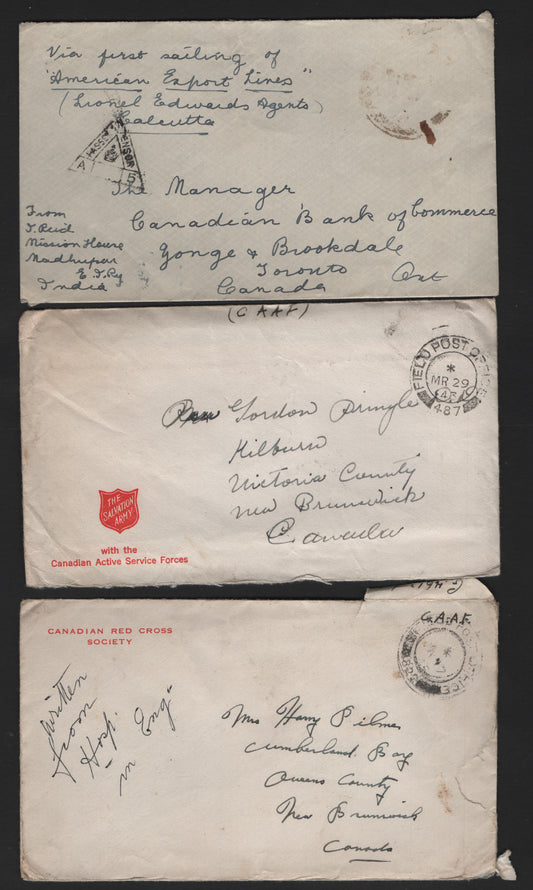 Via first sailing of
"American Export Lines"
(Lionel Edwards Agents)
Calcutta
A
5
The Manager
Canadian Bank of Commerce
Yonge & Brookdale
Toronto Ont
Canada
From
J. Reid
Mission House
Madhupur
E.I.Ry
India
(C A A F)
FIELD POST OFFICE
*
MR 29
487
Gordon Pringle
Kilburn
Victoria County
New Brunswick
Canada
THE
SALVATION
ARMY
with the
Canadian Active Service Forces
C.A.A.F.
CANADIAN RED CROSS
SOCIETY
written
from
Hosp.
in Eng.
Mrs Harry Pilmer
Cumberland Bay
Queens County
New Brunswick
Canada